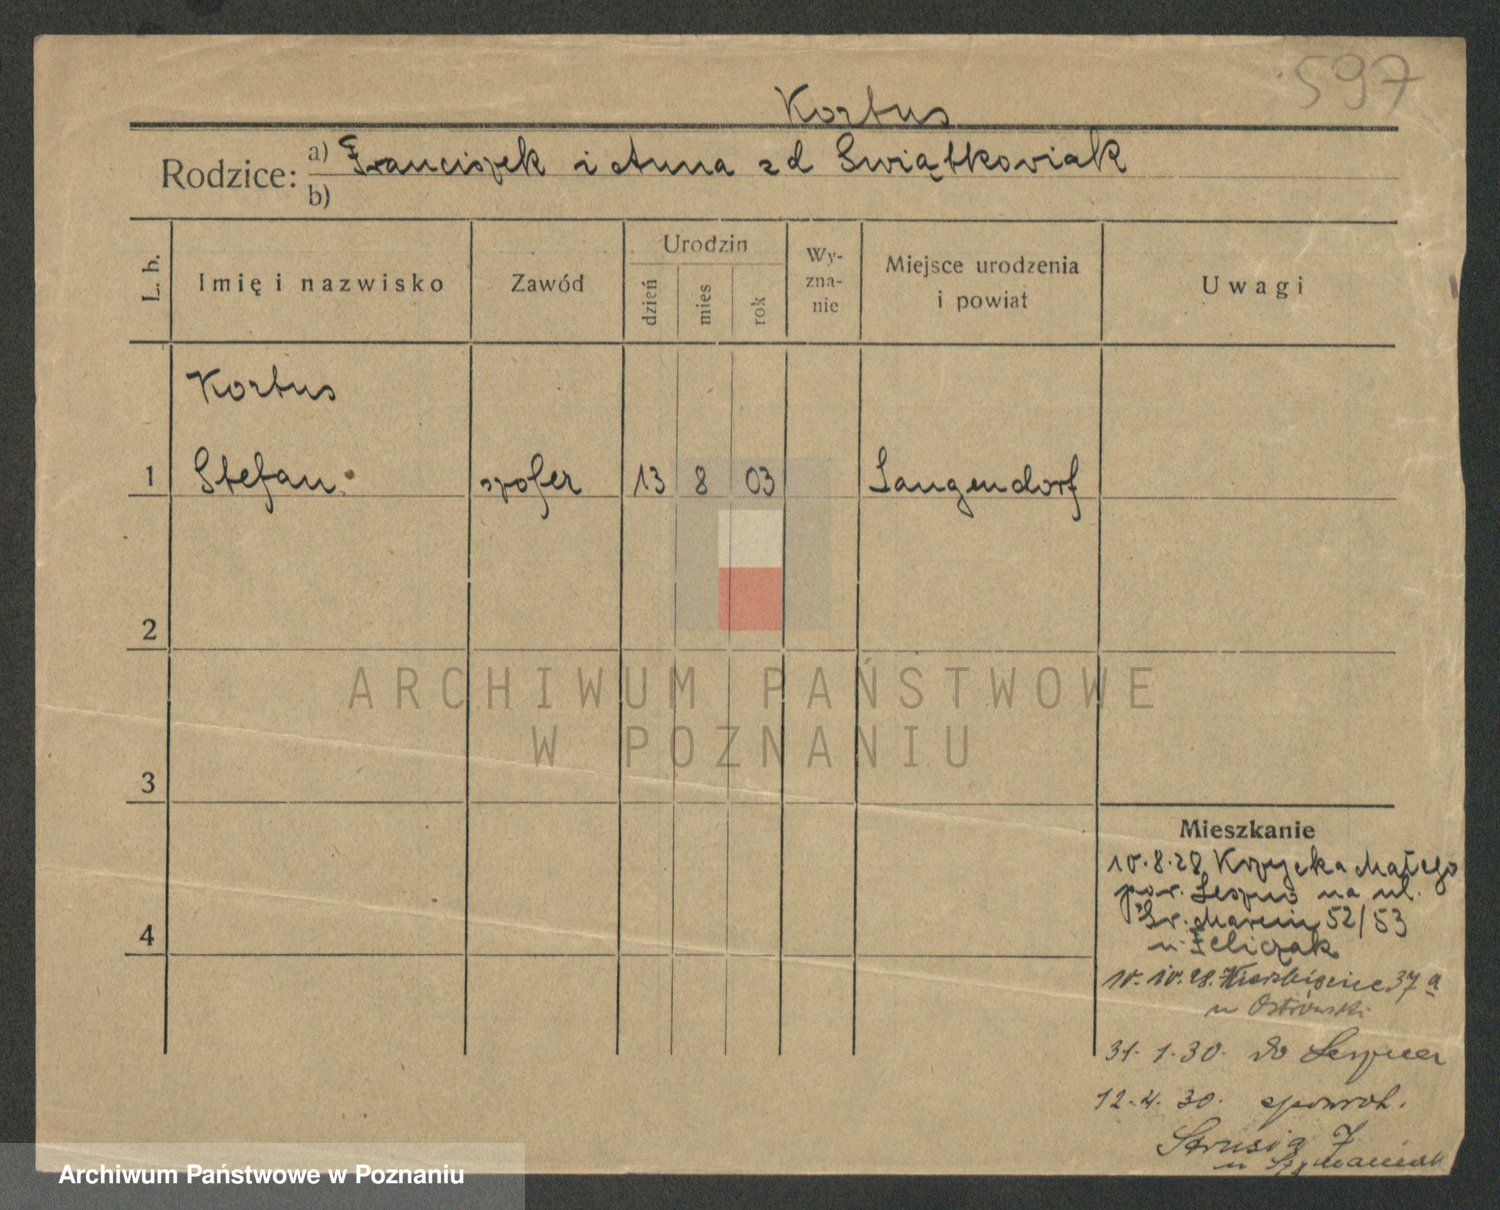 597
Kortus
Rodzice: a) Franciszek i Anna zd Swiątkowiak
b)
L. b.
Imię i nazwisko
Zawód
Urodzin
dzień
mies
rok
Wy-
zna-
nie
Miejsce urodzenia
i powiat
Uwagi
Kortus
1 Stefan szofer 13 8 03 Langendorf
2
3
4
ARCHIWUM PAŃSTWOWE
W POZNANIU
Mieszkanie
10.8.28 Krzycka Małego
pow. Leszno na ul.
Św. Marcin 52/53
u Feliczak
10.10.28. 37 a
u Ostrowski
31.1.30. do
12.4.30.
Strusia 7
Archiwum Państwowe w Poznaniu